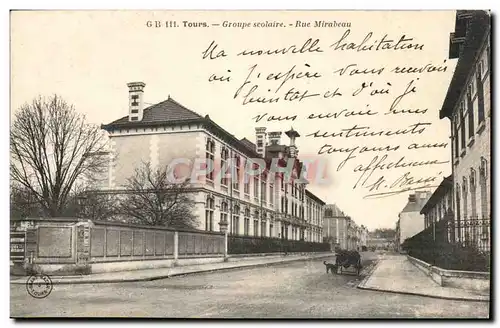 G B 111. Tours. — Groupe scolaire. - Rue Mirabeau
Ma nouvelle habitation
où j'espère vous recevoir
bientôt et d'où j'ai
vous envoie mes
sentiments
toujours affectueux
CPARAMA